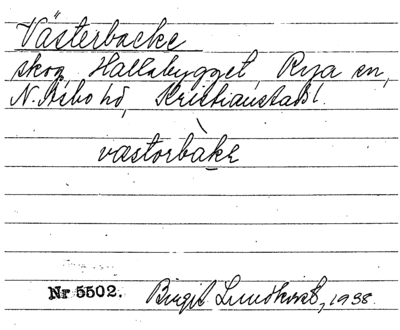 Västerbacke
skog Hallabygget, Rya sn,
N. Åsbo hd, Kristianstads l.
væstorbakɛ
Nr 5502. Birgit Lundkvist, 1938.